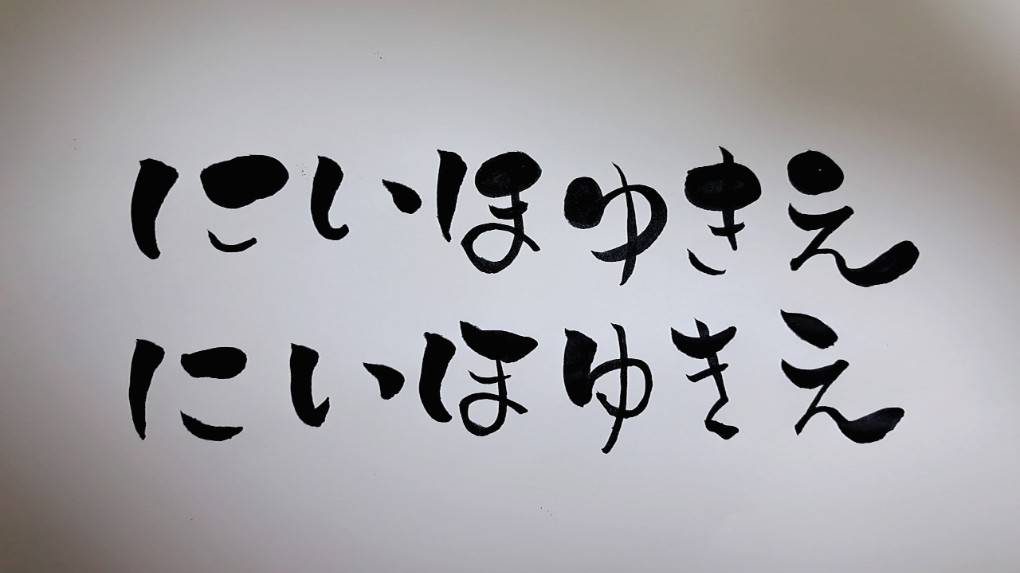 にいほゆきえ
にいほゆきえ